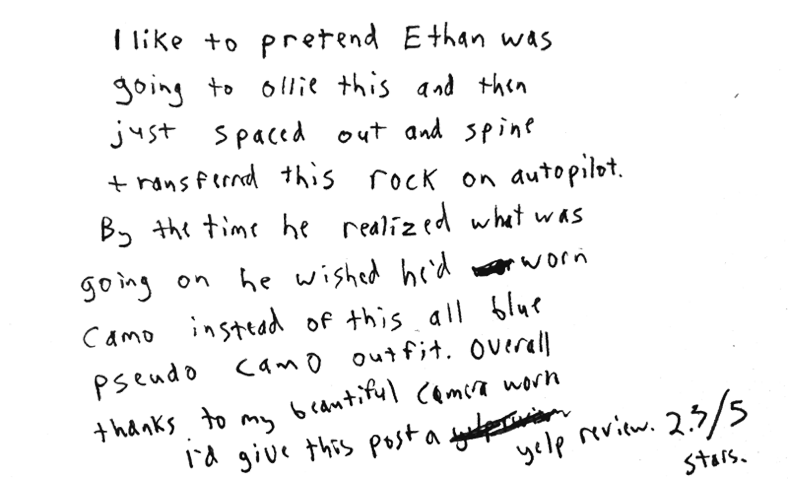 I like to pretend Ethan was
going to ollie this and then
just spaced out and spine
transferrd this rock on autopilot.
By the time he realized what was
going on he wished he'd worn
camo instead of this all blue
pseudo camo outfit. Overall
thanks to my beautiful camera work
i'd give this post a yelp review. 2.3/5
stars.